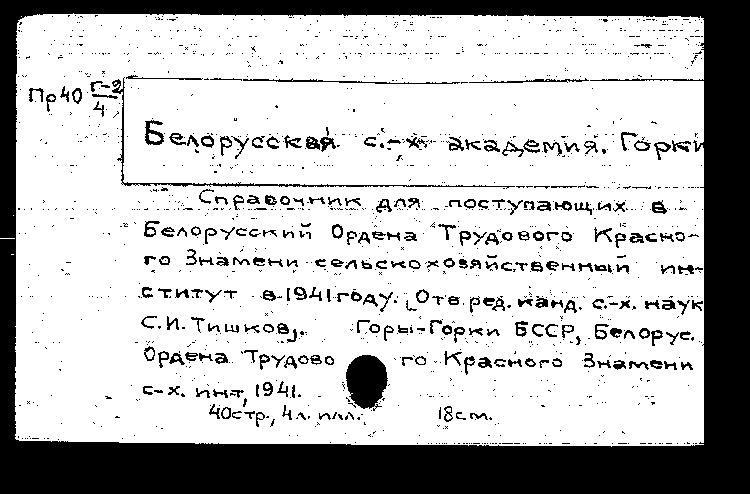 Пр40 Г-2
4
Белорусская с.-х. академия. Горки
Справочник для поступающих в
Белорусский Ордена Трудового Красно-
го Знамени сельскохозяйственный ин-
ститут в 1941 году. [Отв. ред. канд. с.-х. наук
С.И. Тишков]. Горы-Горки БССР, Белорус.
Ордена Трудово го Красного Знамени
с-х. ин-т, 1941.
40стр., 4 л. илл. 18см.